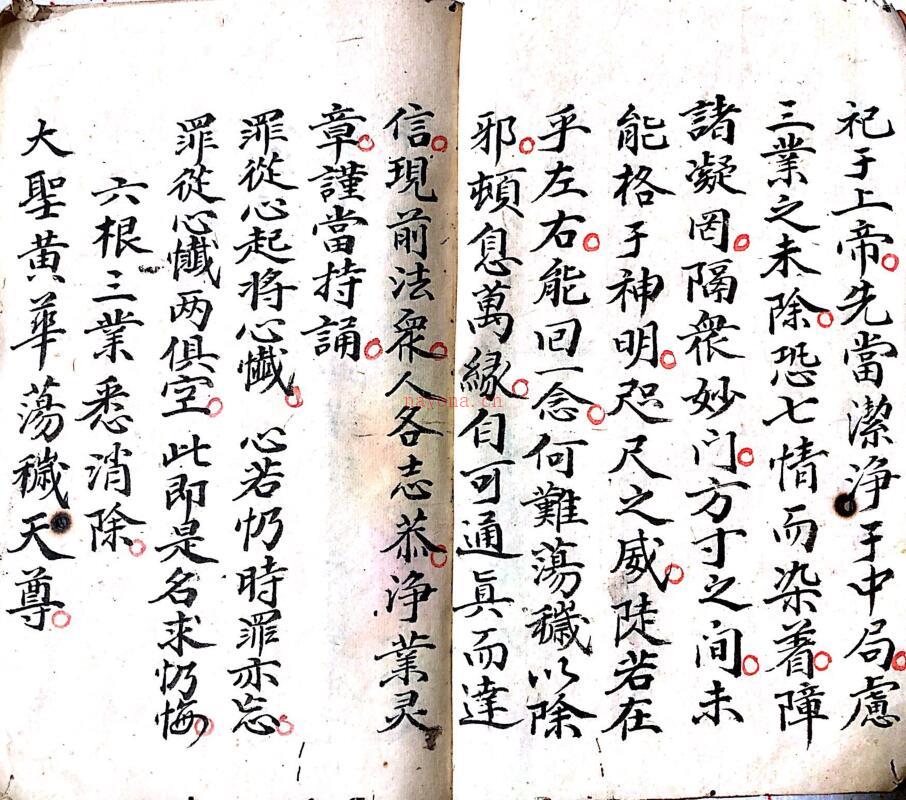 祀于上帝。先當潔净于中局。慮
三業之未除。恐七情而染着。障
諸凝罔。隔衆妙门。方寸之间。未
能格于神明。咫尺之威。陡若在
乎左右。能回一念。何難蕩穢以除
邪。頓息萬緣。自可通眞而達
信。現前法衆。人各志恭。净業灵
章。謹當持誦。
罪從心起将心懺。心若忉時罪亦忘。
罪從心懺两俱空。此即是名求忉悔。
六根三業悉消除。
大聖黄華蕩穢天尊。
payona.cn